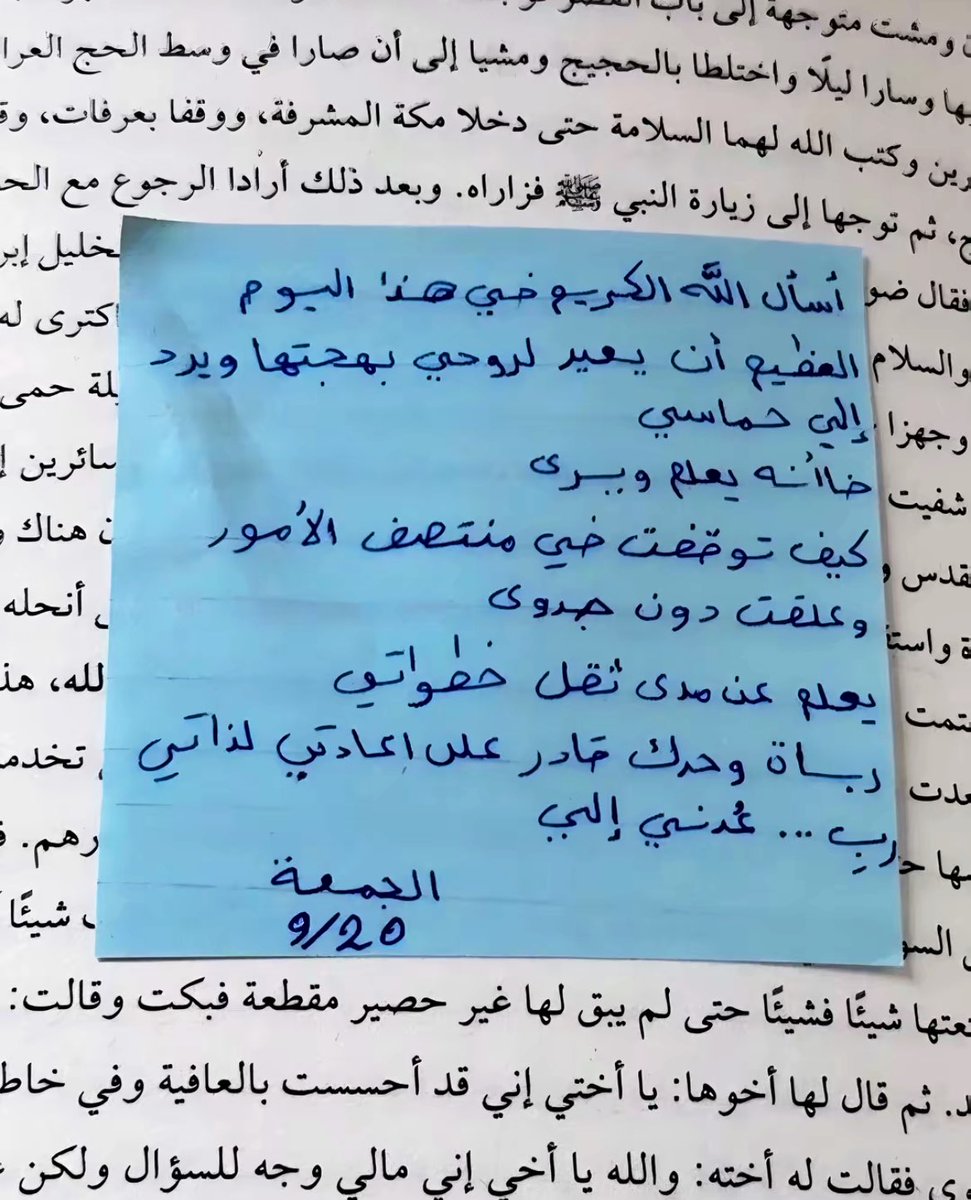 ومشت متوجهة إلى باب القصر
بها وسارا ليلًا واختلطا بالحجيج ومشيا إلى أن صارا في وسط الحج العرا
رين وكتب الله لهما السلامة حتى دخلا مكة المشرفة، ووقفا بعرفات، وق
ج، ثم توجها إلى زيارة النبي ﷺ فزاراه. وبعد ذلك أرادا الرجوع مع الح
فقال ضو
خليل إبر
والسلام
اكترى له
وجهزا
لة حمى
شفيت
سائرين إ
قدس و
ن هناك و
ة واستق
أنحله
تمت
لله، هذ
عدت
تخدم
سها ح
رهم. ف
السو
شيئًا
أسأل الله الكريم في هذا اليوم
العظيم أن يعيد لروحي بهجتها ويرد
إلي حماسي
فاأنه يعلم ويرى
كيف توقفت في منتصف الأمور
وعلقت دون جدوى
يعلم عن مدى ثقل خطواتي
رباة وحدك قادر على إعادتي لذاتي
ربِ ... عُدني إلي
الجمعة
9/20
عتها شيئًا فشيئًا حتى لم يبق لها غير حصير مقطعة فبكت وقالت:
د. ثم قال لها أخوها: يا أختي إني قد أحسست بالعافية وفي خاط
ى فقالت له أخته: والله يا أخي إني مالي وجه للسؤال ولكن